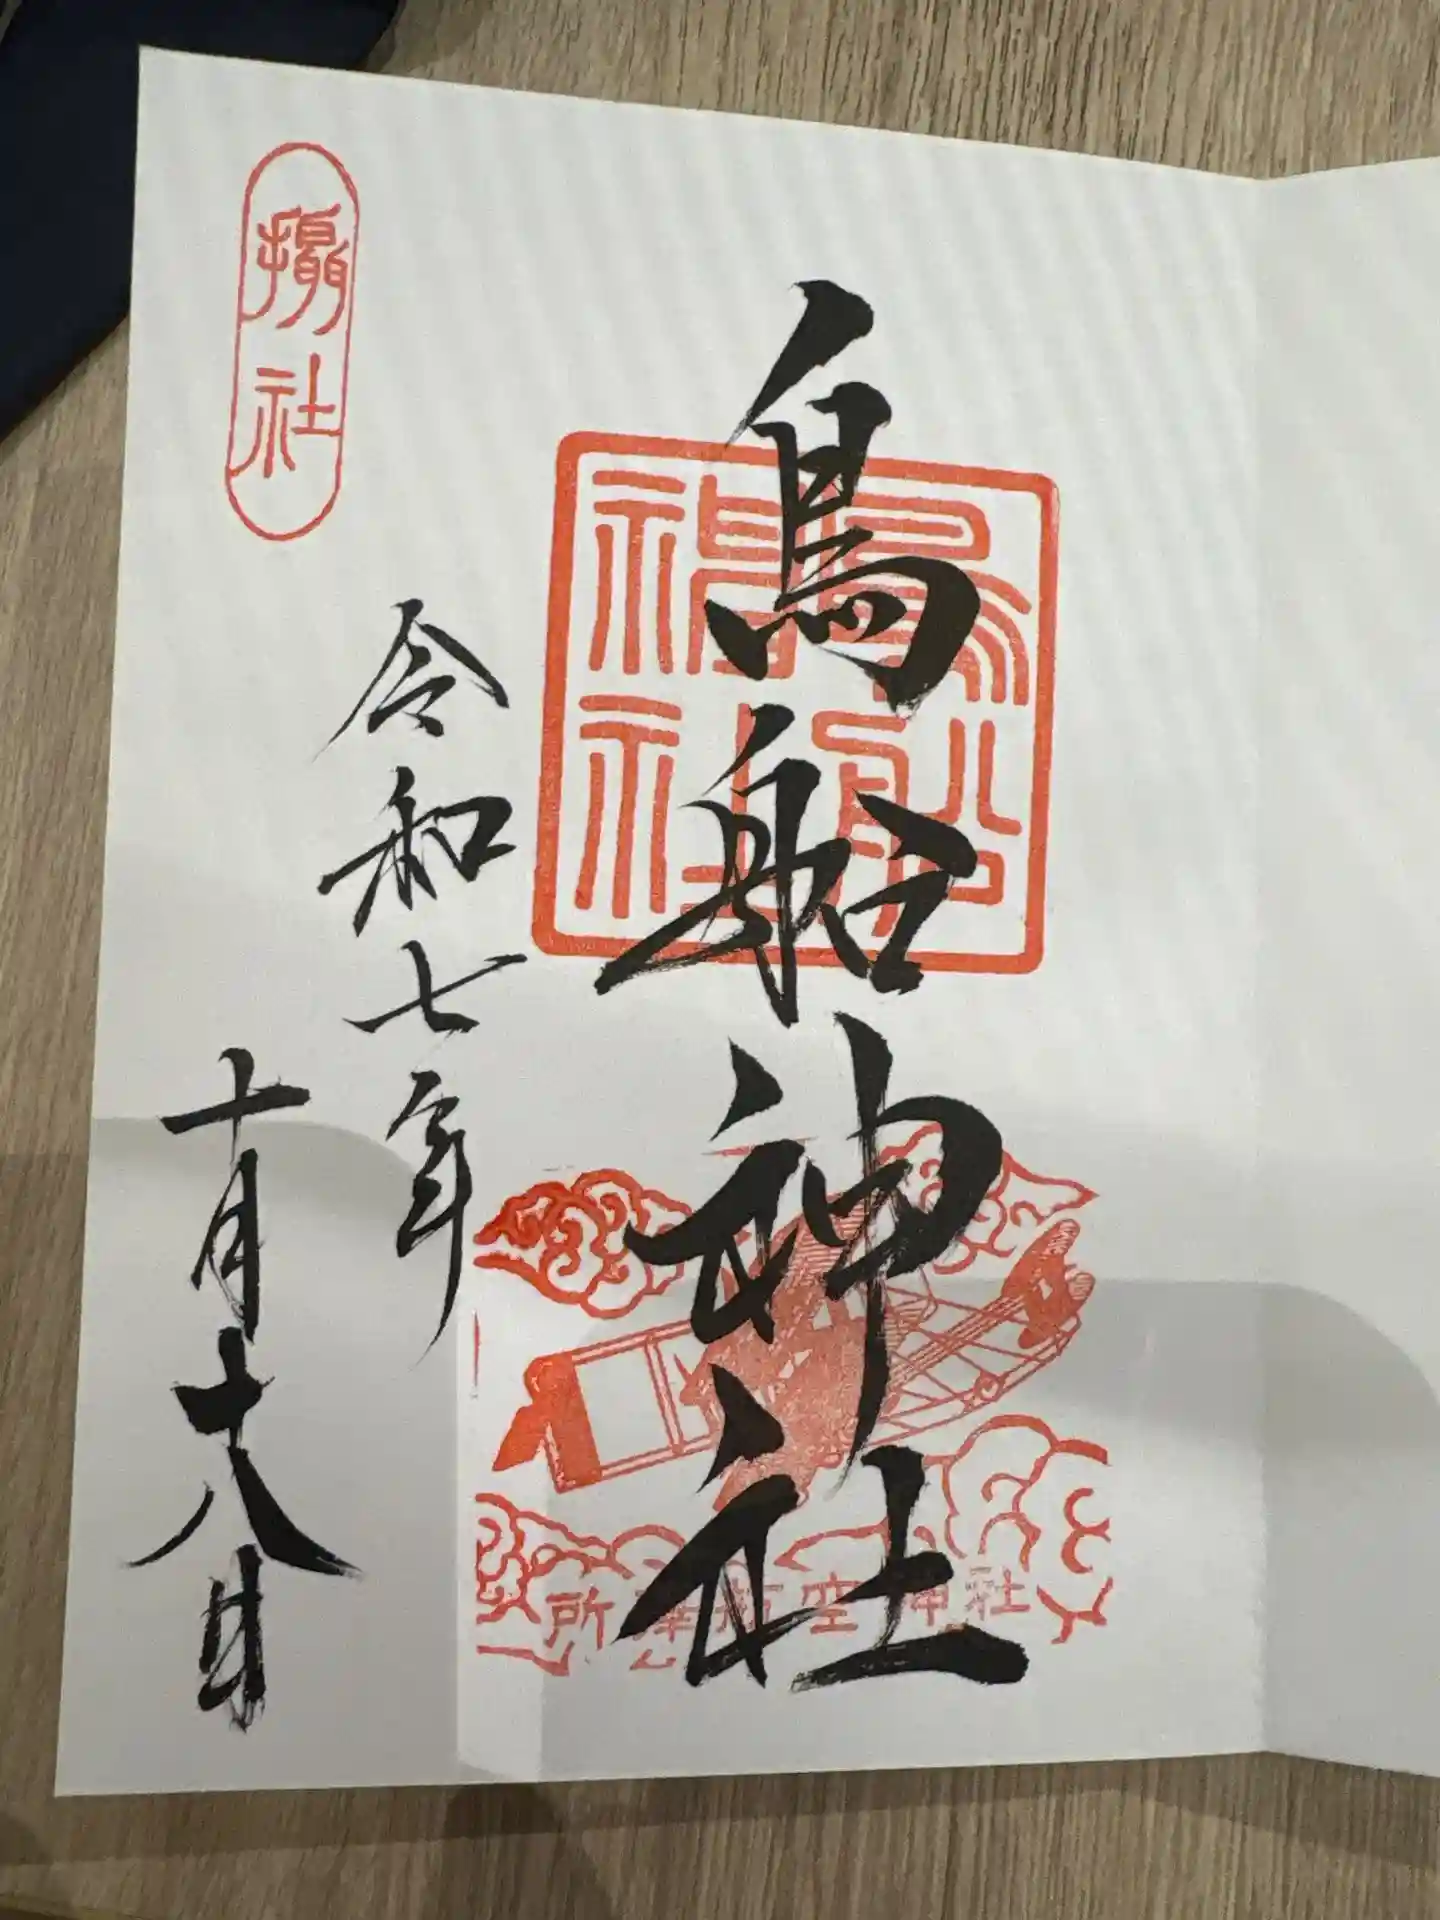 鳥船神社
鳥船
神社
所澤航空神社
令和七年
十月十八日
摂社